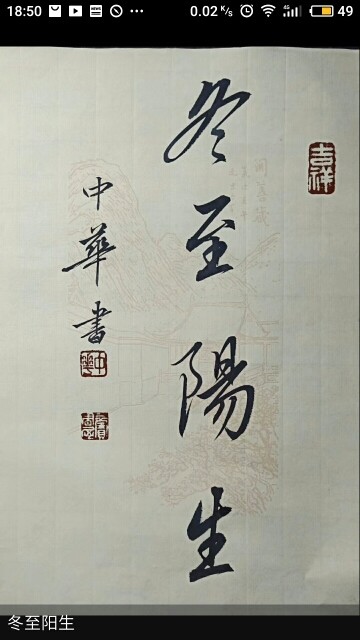 18:50
0.02 K/s
49
冬至陽生
中華書
吉祥
冬至阳生